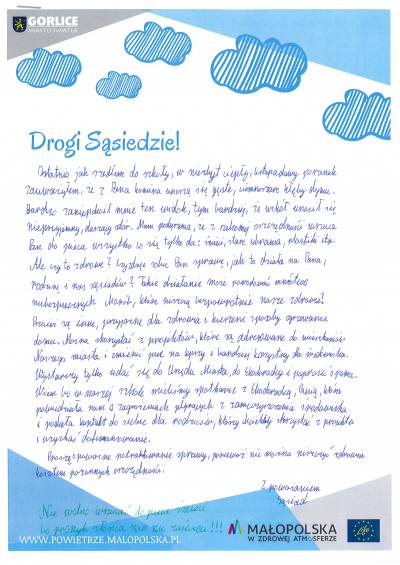 GORLICE
MIASTO ŚWIATŁA
Drogi Sąsiedzie!
Ostatnio jak szedłem do szkoły, w niezbyt ciepły, listopadowy poranek
zauważyłem, że z Pana komina unoszą się gęste, kłęby dymu.
Bardzo zaniepokoił mnie ten widok, tym bardziej, że wokół unosił się
nieprzyjemny, duszący odór. Mam podejrzenia, że z oszczędności wrzuca
Pan do pieca wszystko co się tylko da: śmieci, stare ubrania, plastiki itp.
Ale czy to zdrowe? Czy zdaje sobie Pan sprawę, jak to działa na Pana,
rodzinę i nas sąsiadów? Takie działanie może powodować mnóstwo
niebezpiecznych chorób, które niszczą bezpowrotnie nasze zdrowie!
Przecież są inne, przyjazne dla zdrowia i kieszeni sposoby ogrzewania
domu. Można skorzystać z projektów, które są adresowane do mieszkańców
Naszego miasta i zmienić piec na lepszy i bardziej korzystny dla środowiska.
Wystarczy tylko udać się do Urzędu Miasta, do Ekodoradcy i poprosić o pomoc.
Wiem bo w naszej szkole mieliśmy spotkanie z Ekodoradcą, Panią, która
powiedziała nam o zagrożeniach płynących z zanieczyszczenia środowiska
i podała kontakt do siebie dla rodziców, którzy chcieliby skorzystać z projektu
i uzyskać dofinansowanie.
Proszę poważne potraktowanie sprawy, ponieważ nie można niszczyć zdrowia
kosztem pozornych oszczędności.
Z poważaniem
Sąsiad
Nie wolno wrzucać do pieca śmieci
bo słońca nam nie !!!
WWW.POWIETRZE.MALOPOLSKA.PL
MAŁOPOLSKA
W ZDROWEJ ATMOSFERZE